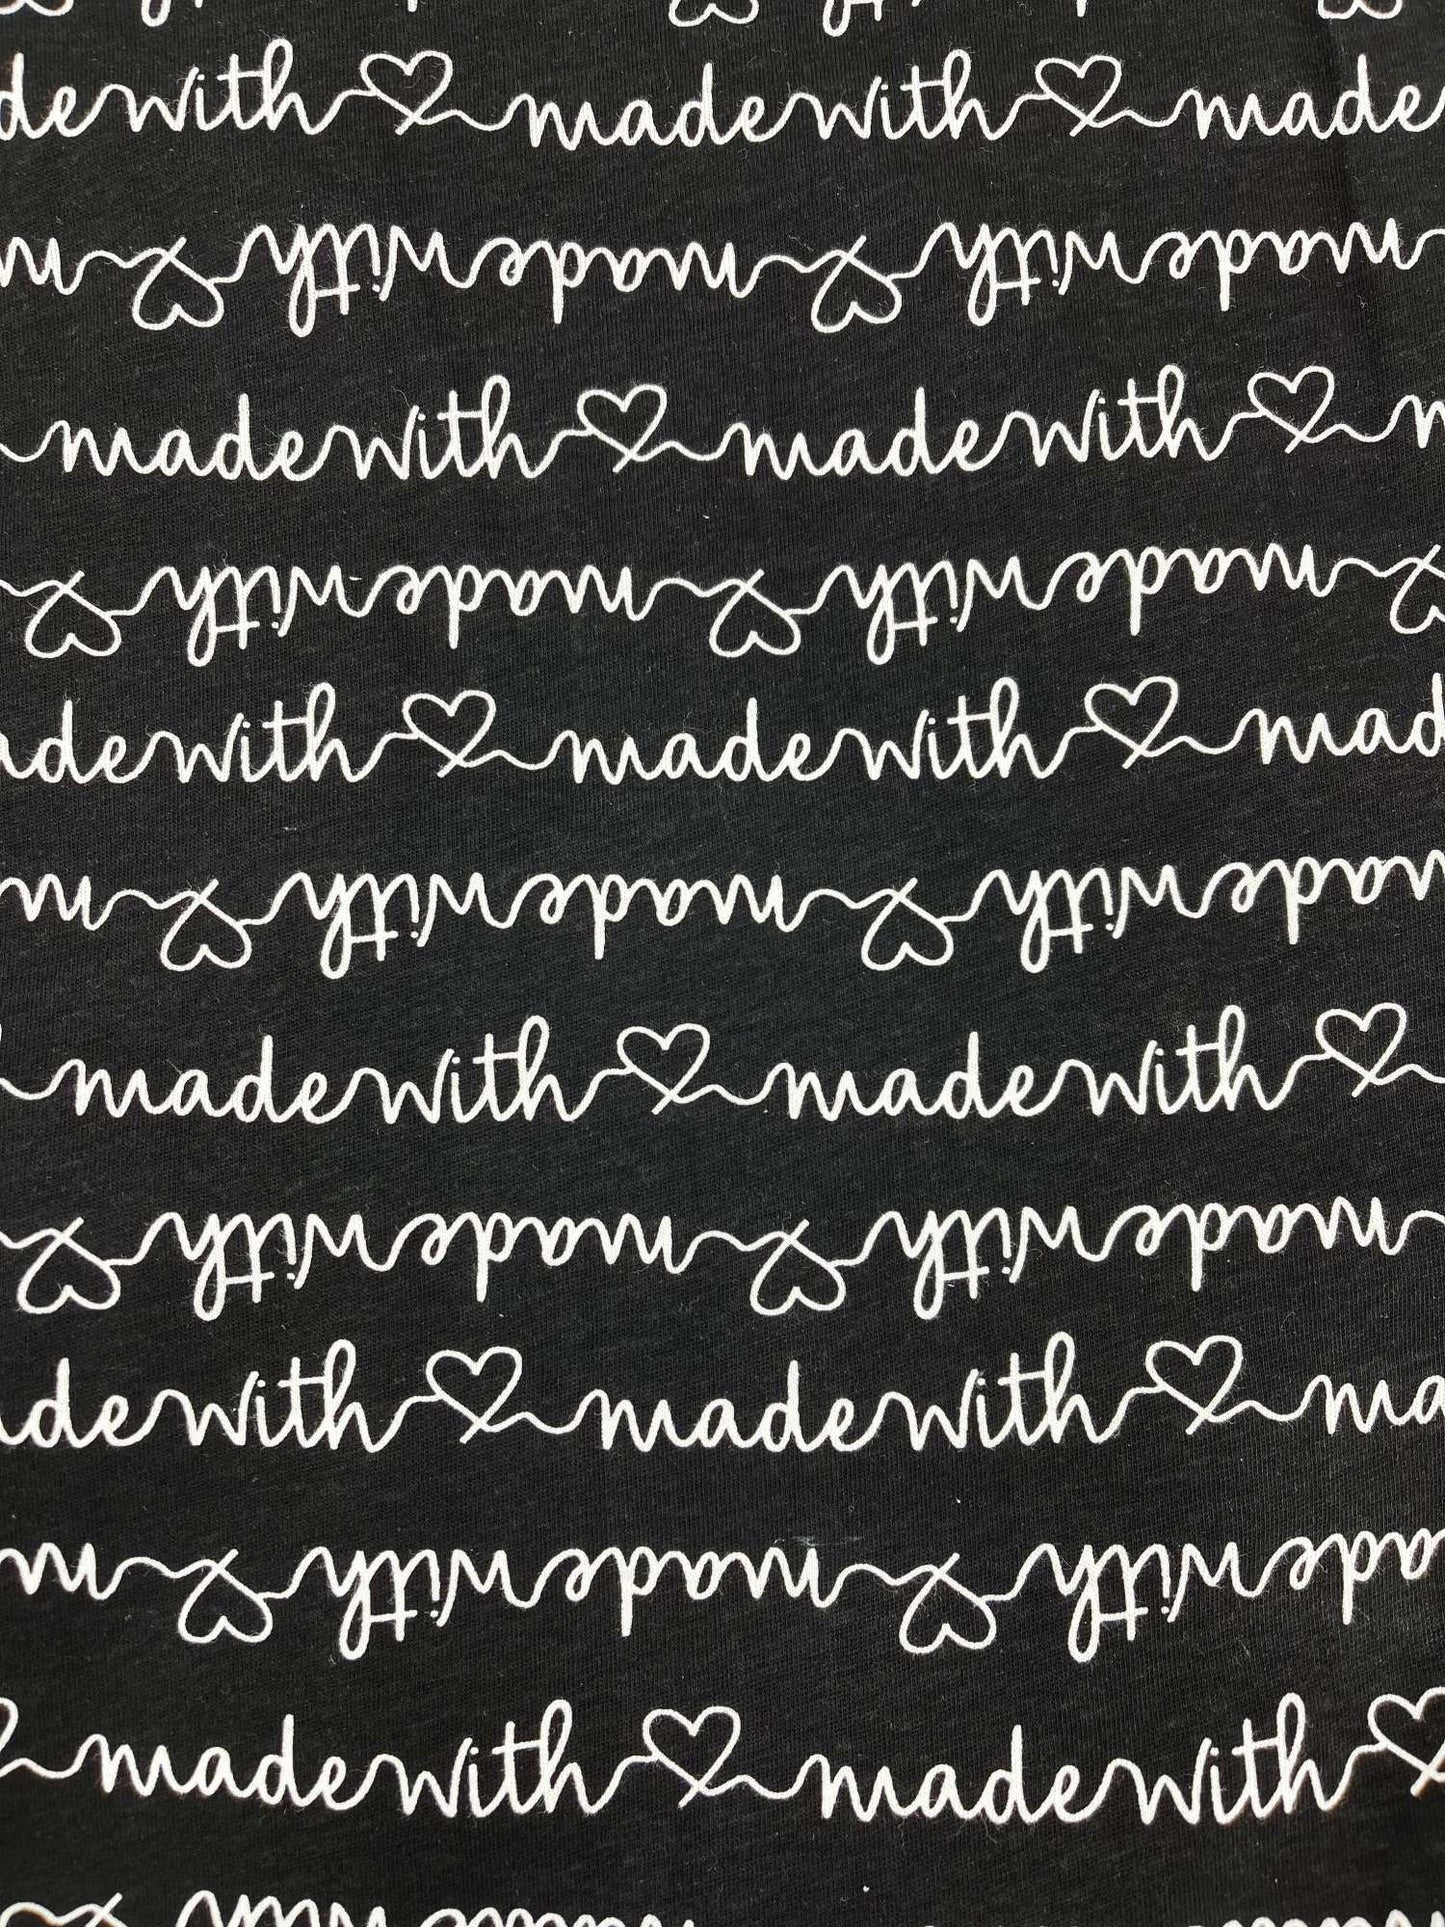 made with made with made
made with made with
made with made with
made with made with
made with made with mad
made with made with
made with made with
made with made with
made with made with ma
made with made with
made with made with
made with